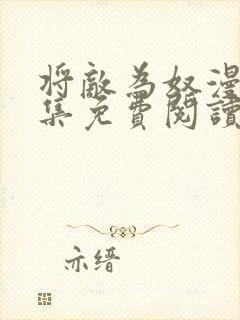 将敵為奴漫
集免費閱讀
亦缙